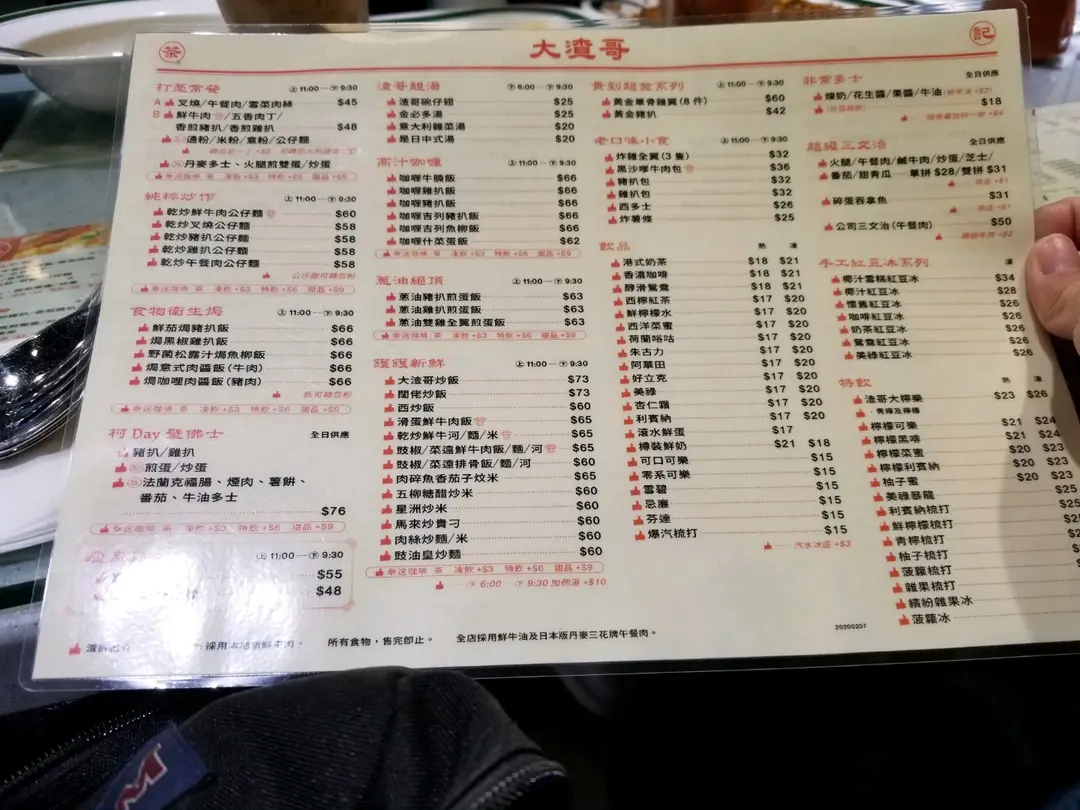 茶
大渣哥
記
打惹常餐 上11:00—下9:30
A 叉燒/午餐肉/雪菜肉絲 $45
B 鮮牛肉/五香肉丁/
香煎豬扒/香煎雞扒 $48
通粉/米粉/意粉/公仔麵
丹麥多士、火腿煎雙蛋/炒蛋
奉送咖啡 茶 凍飲+$3 特飲+$6 甜品+$9
純粹炒作 上11:00—下9:30
乾炒鮮牛肉公仔麵 $60
乾炒叉燒公仔麵 $58
乾炒豬扒公仔麵 $58
乾炒雞扒公仔麵 $58
乾炒午餐肉公仔麵 $58
公仔麵可轉意粉
奉送咖啡 茶 凍飲+$3 特飲+$6 甜品+$9
食物衛生焗 上11:00—下9:30
鮮茄焗豬扒飯 $66
焗黑椒雞扒飯 $66
野菌松露汁焗魚柳飯 $66
焗意式肉醬飯(牛肉) $66
焗咖哩肉醬飯(豬肉) $66
飯可轉意粉
奉送咖啡 茶 凍飲+$3 特飲+$6 甜品+$9
柯 Day 壁佛士 全日供應
豬扒/雞扒
煎蛋/炒蛋
法蘭克福腸、煙肉、薯餅、
番茄、牛油多士
$76
奉送咖啡 茶 凍飲+$3 特飲+$6 甜品+$9
上11:00—下9:30
$55
$48
渣哥靚湯 下6:00—下9:30
渣哥碗仔翅 $25
金必多湯 $25
意大利雜菜湯 $20
是日中式湯 $20
高汁咖喱 上11:00—下9:30
咖喱牛腩飯 $66
咖喱雞扒飯 $66
咖喱豬扒飯 $66
咖喱吉列豬扒飯 $66
咖喱吉列魚柳飯 $66
咖喱什菜蛋飯 $62
奉送咖啡 茶 凍飲+$3 特飲+$6 甜品+$9
蔥油絕頂 上11:00—下9:30
蔥油豬扒煎蛋飯 $63
蔥油雞扒煎蛋飯 $63
蔥油雙雞全翼煎蛋飯 $63
奉送咖啡 茶 凍飲+$3 特飲+$6 甜品+$9
鑊鑊新鮮 上11:00—下9:30
大渣哥炒飯 $73
闊佬炒飯 $73
西炒飯 $60
滑蛋鮮牛肉飯 $65
乾炒鮮牛河/麵/米 $65
豉椒/菜遠鮮牛肉飯/麵/河 $65
豉椒/菜遠排骨飯/麵/河 $60
肉碎魚香茄子炆米 $65
五柳糖醋炒米 $60
星洲炒米 $60
馬來炒貴刁 $60
肉絲炒麵/米 $60
豉油皇炒麵 $60
奉送咖啡 茶 凍飲+$3 特飲+$6 甜品+$9
下6:00—下9:30 加例湯+$10
貴則超金系列 上11:00—下9:30
黃金單骨雞翼(8件) $60
黃金豬扒 $42
老口味小食 上11:00—下9:30
炸雞全翼(3隻) $32
黑沙嗲牛肉包 $36
豬扒包 $32
雞扒包 $32
西多士 $26
炸薯條 $25
飲品 熱 凍
港式奶茶 $18 $21
香濃咖啡 $18 $21
醇滑鴛鴦 $18 $21
西檸紅茶 $17 $20
鮮檸檬水 $17 $20
西洋菜蜜 $17 $20
荷蘭谷咕 $17 $20
朱古力 $17 $20
阿華田 $17 $20
好立克 $17 $20
美祿 $17 $20
杏仁霜 $17 $20
利賓納 $17 $20
滾水鮮蛋 $17
樽裝鮮奶 $21 $18
可口可樂 $15
零系可樂 $15
雪碧 $15
忌廉 $15
芬達 $15
爆汽梳打 $15
汽水冰底+$3
非常多士 全日供應
煉奶/花生醬/果醬/牛油
$18
超級三文治 全日供應
火腿/午餐肉/鹹牛肉/炒蛋/芝士/
番茄/甜青瓜 單拼 $28/雙拼 $31
碎蛋吞拿魚 $31
公司三文治(午餐肉) $50
手工紅豆冰系列 凍
椰汁雪糕紅豆冰 $34
椰汁紅豆冰 $28
懷舊紅豆冰 $26
咖啡紅豆冰 $26
奶茶紅豆冰 $26
鴛鴦紅豆冰 $26
美祿紅豆冰 $26
特飲 熱 凍
渣哥大檸樂 $23 $26
青檸及檸檬
檸檬可樂 $21 $24
檸檬黑啡 $21 $24
檸檬菜蜜 $20 $23
檸檬利賓納 $20 $23
柚子蜜 $20 $23
美祿暴龍 $25
利賓納梳打
鮮檸檬梳打
青檸梳打
柚子梳打
菠蘿梳打
雜果梳打
繽紛雜果冰
菠蘿冰
採用本地新鮮牛肉。 所有食物，售完即止。 全店採用鮮牛油及日本版丹麥三花牌午餐肉。
20200207